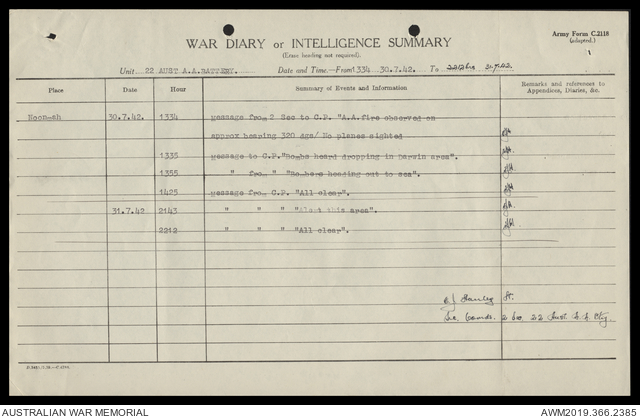 Army Form C.2118
(adapted.)
WAR DIARY or INTELLIGENCE SUMMARY
(Erase heading not required).
1
Unit 22 AUST A.A.BATTERY. Date and Time—From 1334 30.7.42. To 2212hrs 31.7.42.
Place Date Hour Summary of Events and Information Remarks and references to Appendices, Diaries, &c.
Noonmah 30.7.42. 1334 message from 2 Sec to C.P. "A.A.fire observed on
approx bearing 320 dgs/ No planes sighted
1335 message to C.P."Bombs heard dropping in Darwin area".
1355 " from " "Bombers heading out to sea".
1425 message from C.P. "All clear".
31.7.42 2143 " " " "Alert this area".
2212 " " " "All clear".
Lt.
2 Sec 22 Aust. A.A. Bty.
AUSTRALIAN WAR MEMORIAL AWM2019.366.2385